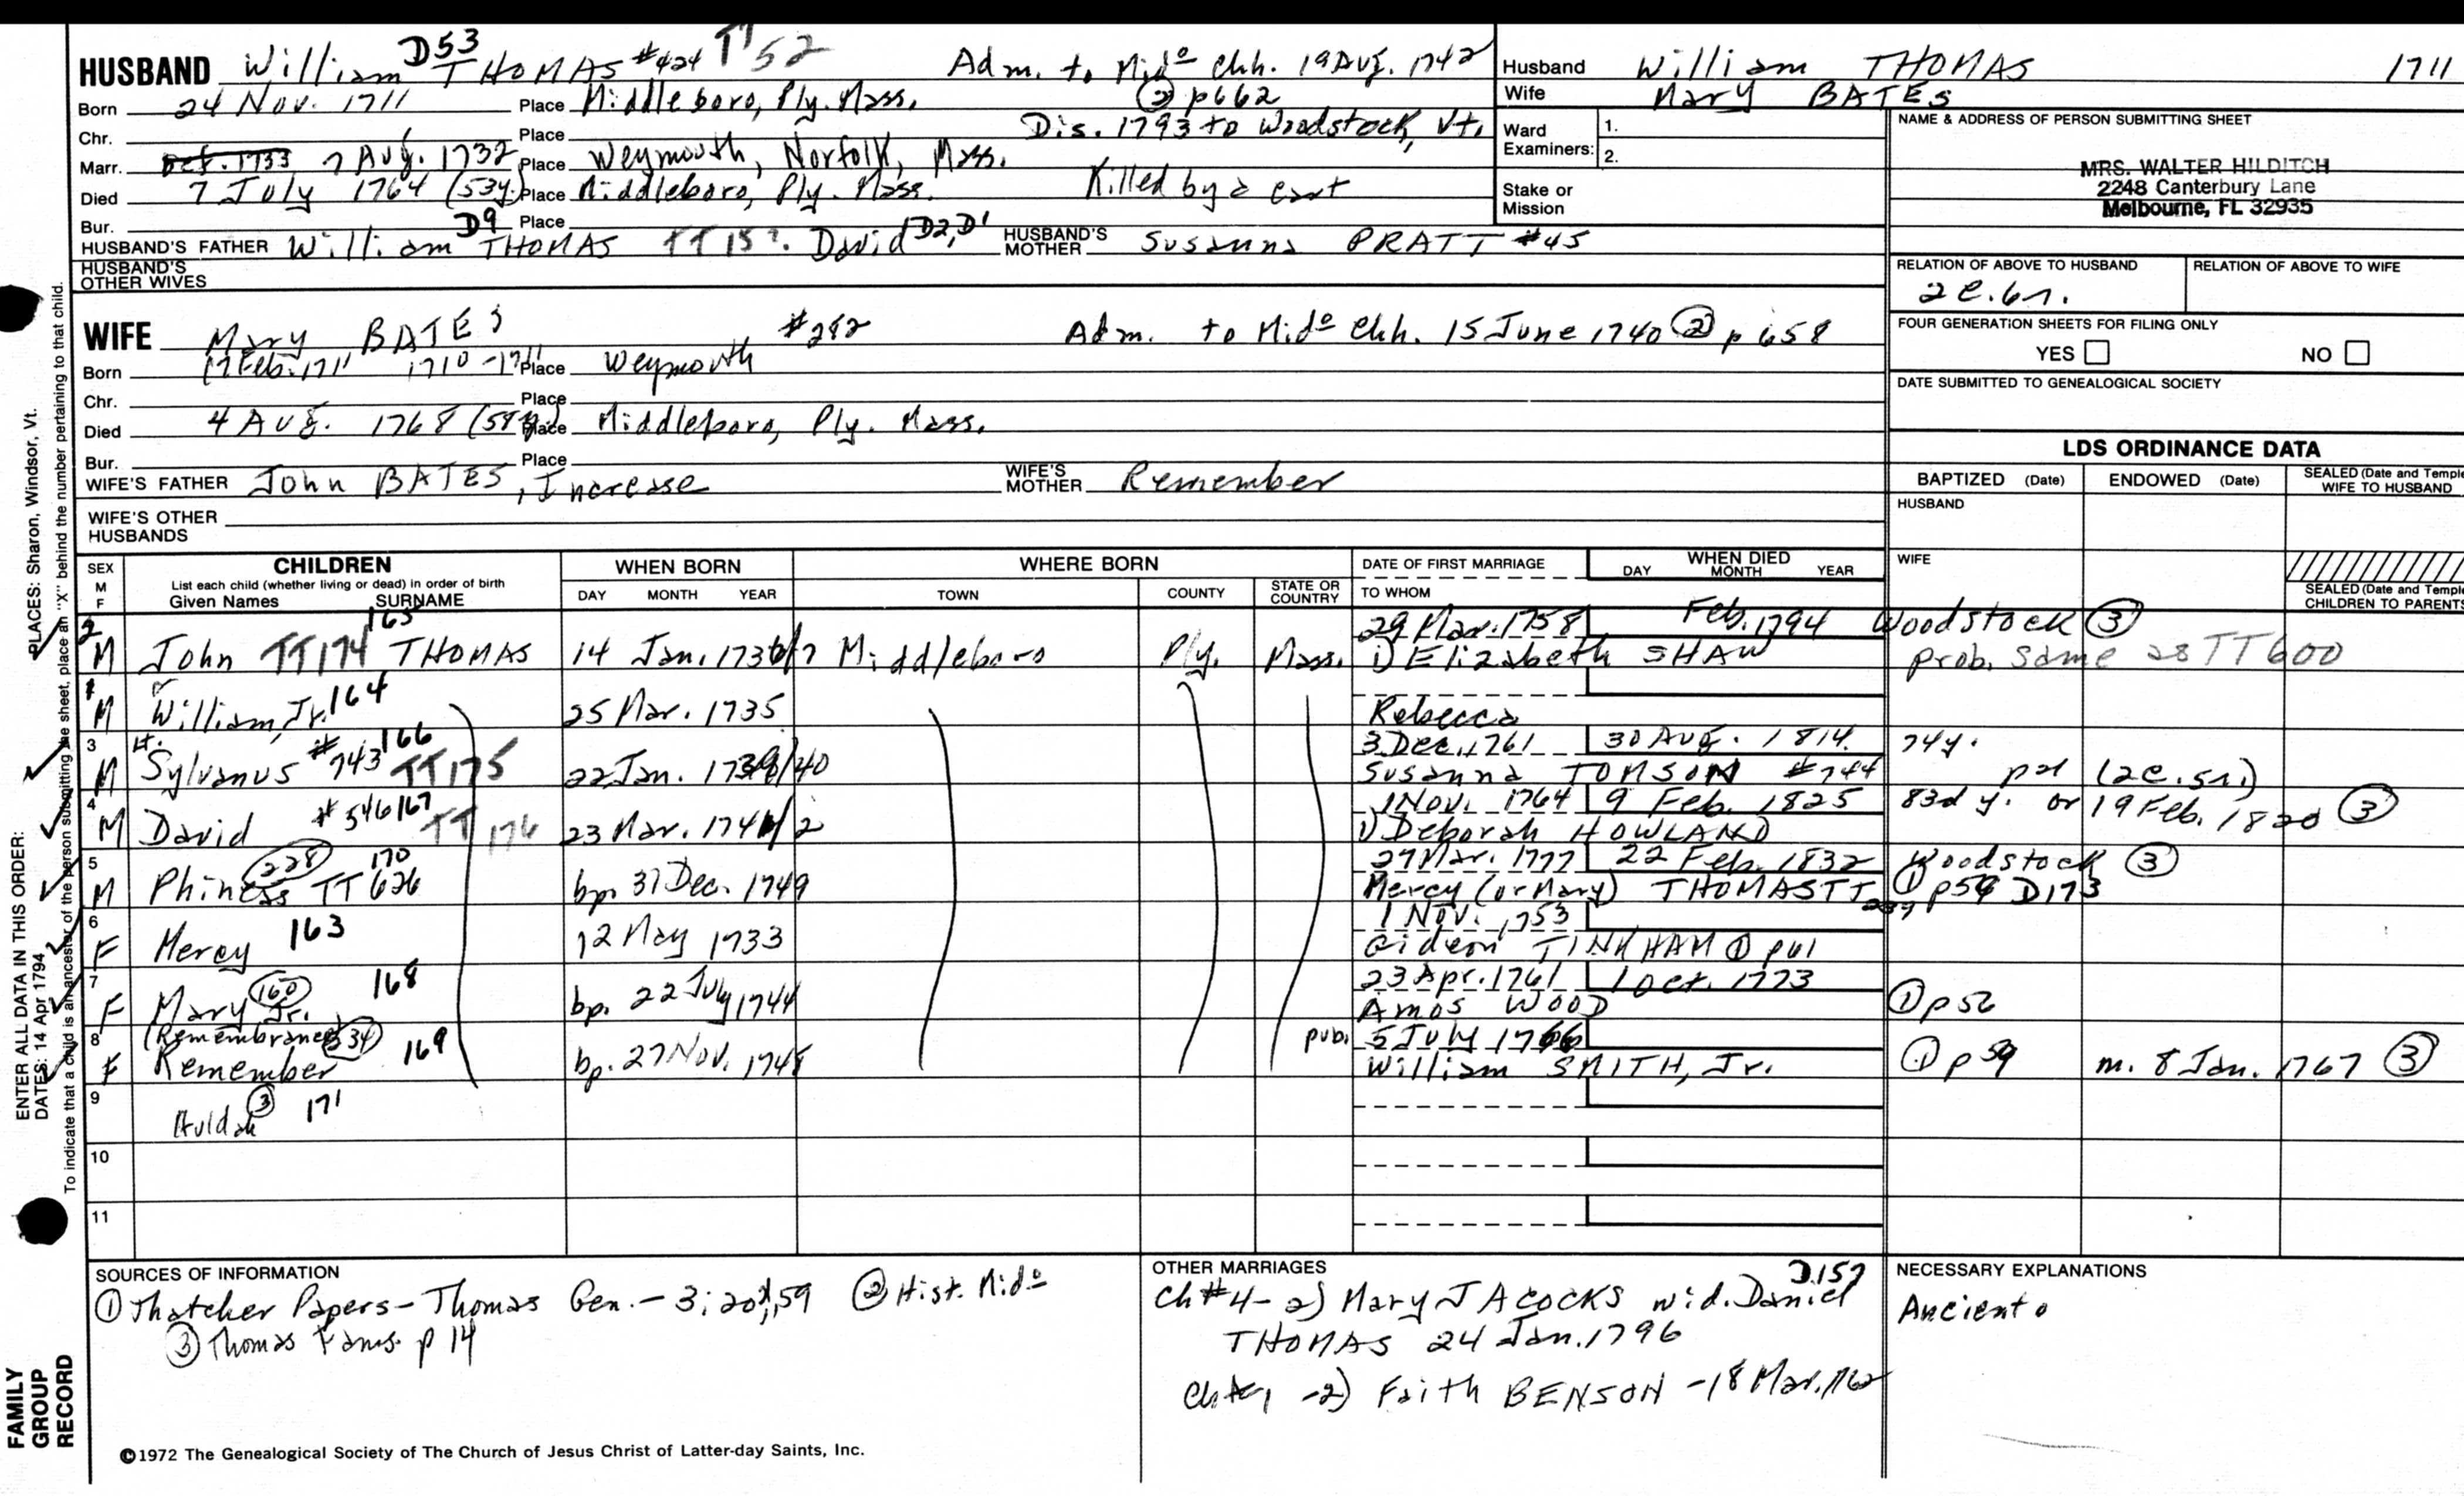 HUSBAND William D53 THOMAS #424 TT52 Adm. to Mido Chh. 19 Aug. 1742
Born 24 Nov. 1711 Place Middleboro, Ply. Mass. (2) p662
Chr. Place Dis. 1793 to Woodstock, Vt.
Marr. Oct. 1733 7 Aug. 1732 Place Weymouth, Norfolk, Mass.
Died 7 July 1764 (53y.) Place Middleboro, Ply. Mass. Killed by a cart
Bur. Place
HUSBAND'S FATHER William D9 THOMAS TT15?. David D2, D1 HUSBAND'S MOTHER Susanna PRATT #45
HUSBAND'S OTHER WIVES
Husband William THOMAS 1711
Wife Mary BATES
Ward Examiners: 1.
2.
Stake or Mission
NAME & ADDRESS OF PERSON SUBMITTING SHEET
MRS. WALTER HILDITCH
2248 Canterbury Lane
Melbourne, FL 32935
RELATION OF ABOVE TO HUSBAND RELATION OF ABOVE TO WIFE
FOUR GENERATION SHEETS FOR FILING ONLY
YES NO
DATE SUBMITTED TO GENEALOGICAL SOCIETY
WIFE Mary BATES #282 Adm. to Mido Chh. 15 June 1740 (2) p 658
Born 17 Feb. 1711 1710-1711 Place Weymouth
Chr. Place
Died 4 Aug. 1768 (58y.) Place Middleboro, Ply. Mass.
Bur. Place
WIFE'S FATHER John BATES, Increase WIFE'S MOTHER Remember
WIFE'S OTHER HUSBANDS
LDS ORDINANCE DATA
BAPTIZED (Date) ENDOWED (Date) SEALED (Date and Temple) WIFE TO HUSBAND
HUSBAND
WIFE
SEALED (Date and Temple) CHILDREN TO PARENTS
SEX M F CHILDREN List each child (whether living or dead) in order of birth Given Names SURNAME WHEN BORN DAY MONTH YEAR WHERE BORN TOWN COUNTY STATE OR COUNTRY DATE OF FIRST MARRIAGE TO WHOM WHEN DIED DAY MONTH YEAR
2 165 29 Mar. 1758 Feb. 1794 Woodstock (3)
M John TT174 THOMAS 14 Jan. 1736/7 Middleboro Ply. Mass. 1) Elizabeth SHAW prob. same as TT600
1 M William, Jr. 164 25 Mar. 1735 Rebecca
3 Lt. 166 3 Dec. 1761 30 Aug. 1814. 74y.
M Sylvanus #743 TT175 22 Jan. 1739/40 Susanna TOMSON #744
4 1 Nov. 1764 9 Feb. 1825 83d y. or 19 Feb. 1820 (3)
M David #546 167 TT176 23 Mar. 1741/2 1) Deborah HOWLAND
5 (228) 170 27 Mar. 1777 22 Feb. 1832 Woodstock (3)
M Phineas TT626 bp. 31 Dec. 1749 Mercy (or Mary) THOMAS TT 239 (1) p54 D173
6 1 Nov. 1753
F Mercy 163 12 May 1733 Gideon TINKHAM (1) p41
7 (160) 168 23 Apr. 1761 1 Oct. 1773
F Mary Jr. bp. 22 July 1744 Amos WOOD (1) p56
8 (Remembrance) (334) 169 pub. 5 July 1766
F Remember bp. 27 Nov. 1748 William SMITH, Jr. (1) p 59 m. 8 Jan. 1767 (3)
9 Huldah (3) 171
10
11
SOURCES OF INFORMATION
(1) Thatcher Papers - Thomas Gen. - 3; 20,59 (2) Hist. Mido
(3) Thomas Fams. p 14
OTHER MARRIAGES
Ch#4- 2) Mary JACOCKS wid. Daniel D157
THOMAS 24 Jan. 1796
Ch#1 -2) Faith BENSON -18 Mar. 1762
NECESSARY EXPLANATIONS
©1972 The Genealogical Society of The Church of Jesus Christ of Latter-day Saints, Inc.
FAMILY GROUP RECORD
ENTER ALL DATA IN THIS ORDER:
DATES: 14 Apr 1794
PLACES: Sharon, Windsor, Vt.
To indicate that a child is an ancestor of the person submitting the sheet, place an "X" behind the number pertaining to that child.